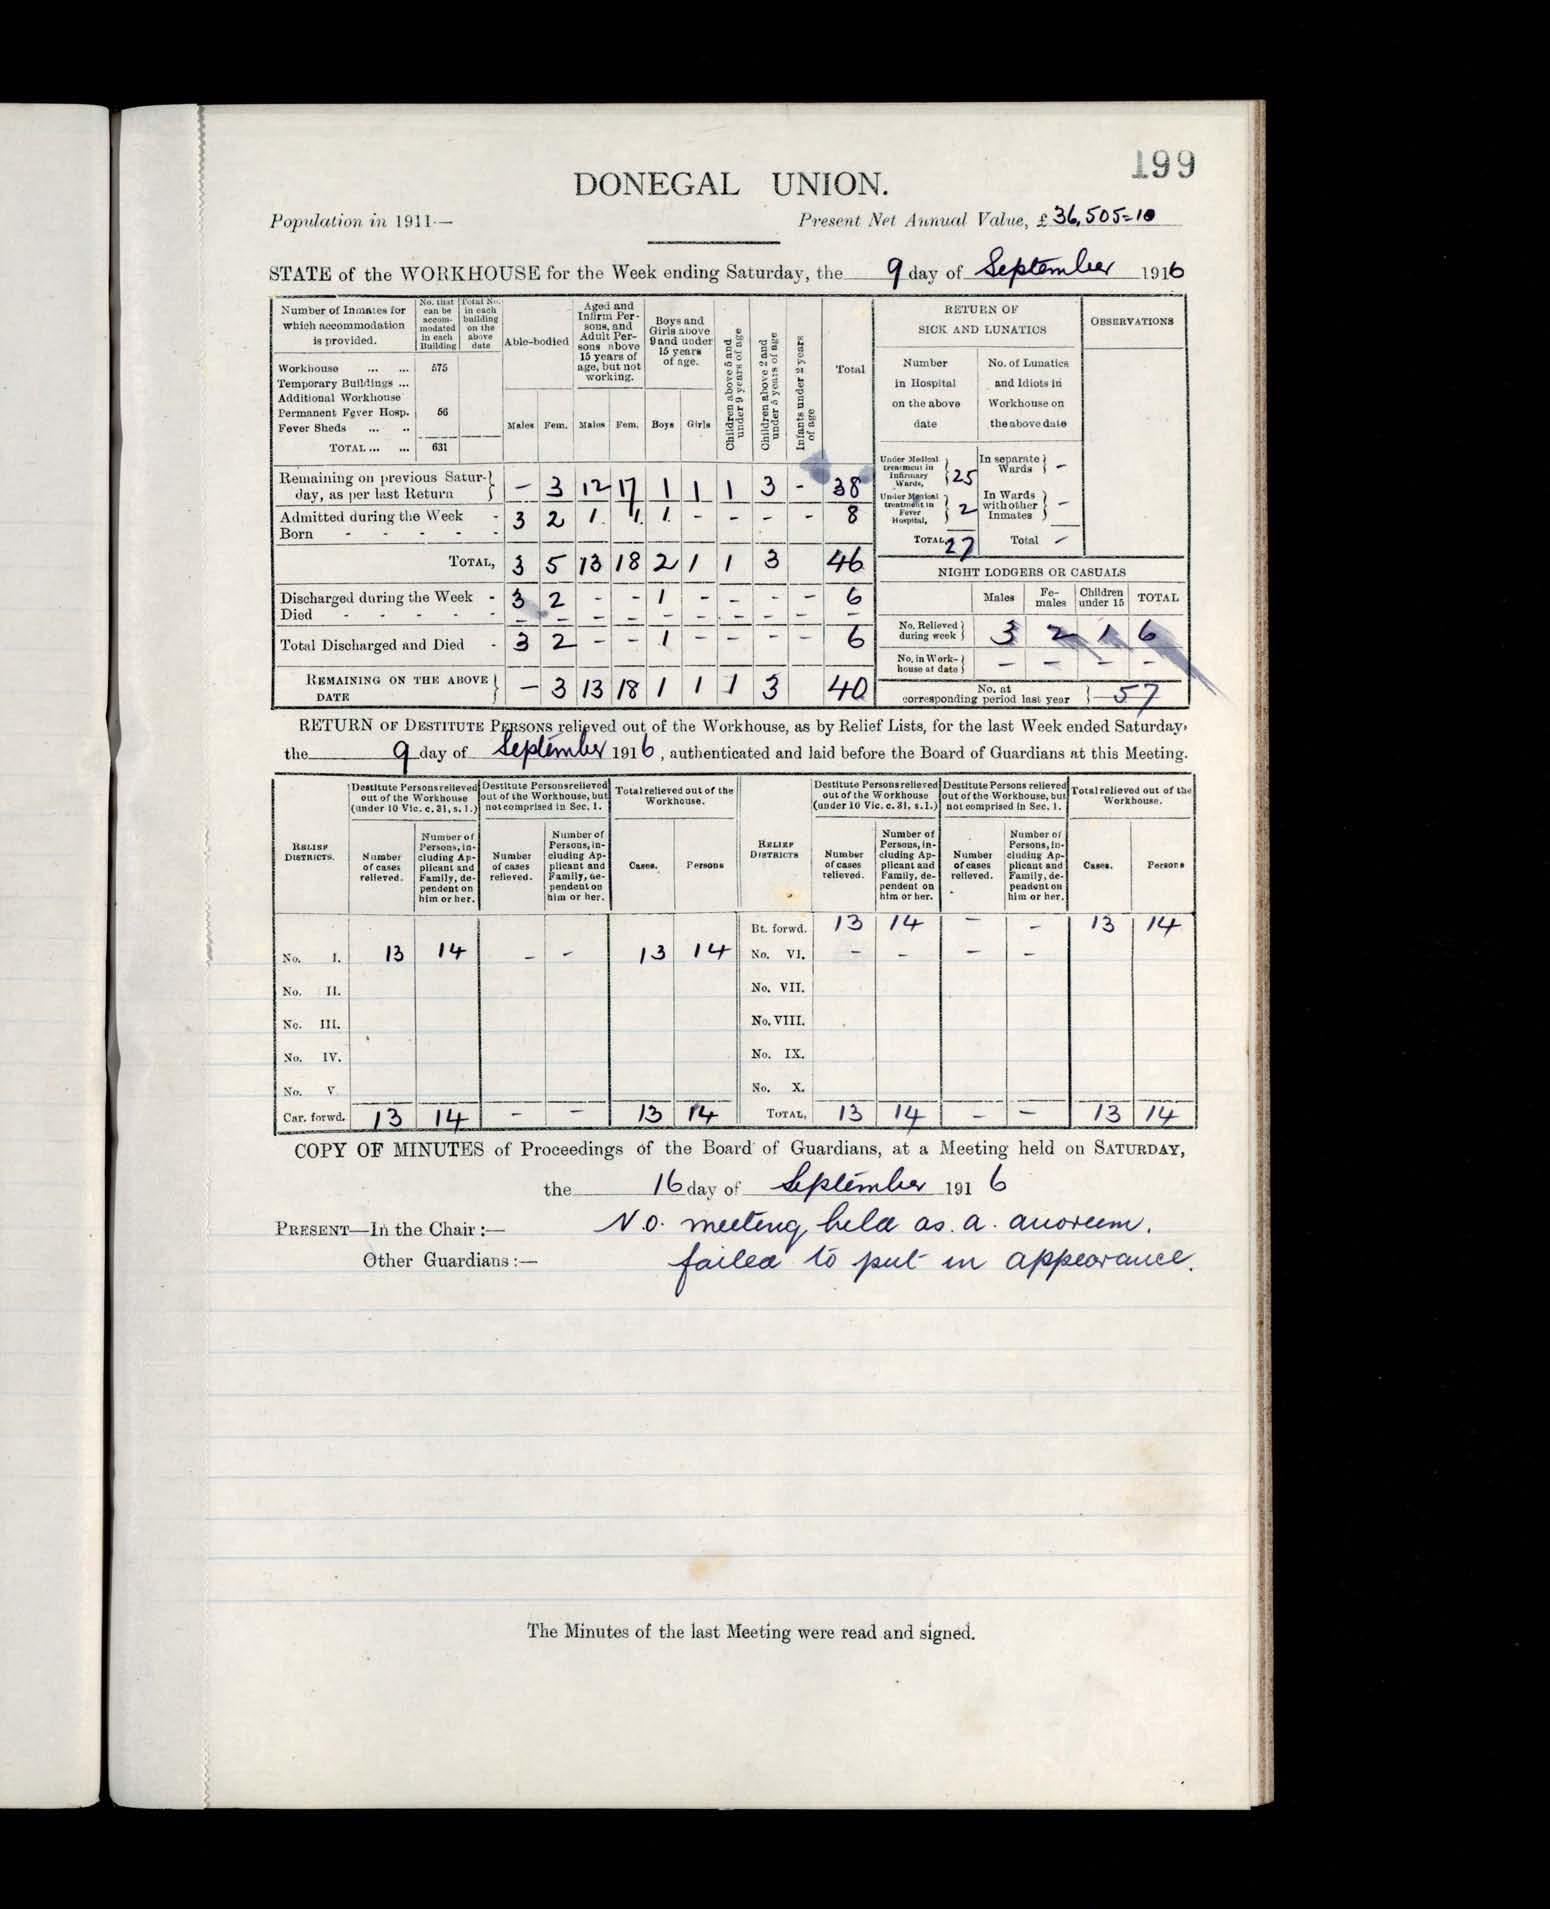 199
DONEGAL UNION.
Population in 1911—
Present Net Annual Value, £ 36,505=10
STATE of the WORKHOUSE for the Week ending Saturday, the 9 day of September 1916
Number of Inmates for which accommodation is provided.
No. that can be accommodated in each Building
Total No. in each building on the above date
Able-bodied
Aged and Infirm Persons, and Adult Persons above 15 years of age, but not working.
Boys and Girls above 9 and under 15 years of age.
Children above 5 and under 9 years of age
Children above 2 and under 5 years of age
Infants under 2 years of age
Total
Males Fem. Males Fem. Boys Girls
Workhouse ... ... 575
Temporary Buildings ...
Additional Workhouse
Permanent Fever Hosp. 56
Fever Sheds ... ..
TOTAL ... ... 631
Remaining on previous Saturday, as per last Return } – 3 12 17 1 1 1 3 - 38
Admitted during the Week - 3 2 1. 1. 1. - - - - 8
Born - - - - -
TOTAL, 3 5 13 18 2 1 1 3 46
Discharged during the Week - 3 2 - - 1 - - - - 6
Died - - - - - – – – – – – – – – –
Total Discharged and Died - 3 2 - - 1 - - - - 6
REMAINING ON THE ABOVE DATE } – 3 13 18 1 1 1 3 40
RETURN OF SICK AND LUNATICS
OBSERVATIONS
Number in Hospital on the above date
No. of Lunatics and Idiots in Workhouse on the above date
Under Medical treatment in Infirmary Wards, } 25
In separate Wards } –
Under Medical treatment in Fever Hospital, } 2
In Wards with other Inmates } –
TOTAL, 27
Total –
NIGHT LODGERS OR CASUALS
Males Females Children under 15 TOTAL
No. Relieved during week } 3 2 1 6
No. in Workhouse at date } – – – –
No. at corresponding period last year } 57
RETURN OF DESTITUTE PERSONS relieved out of the Workhouse, as by Relief Lists, for the last Week ended Saturday,
the 9 day of September 1916, authenticated and laid before the Board of Guardians at this Meeting.
RELIEF DISTRICTS.
Destitute Persons relieved out of the Workhouse (under 10 Vic. c. 31, s. 1.)
Destitute Persons relieved out of the Workhouse, but not comprised in Sec. 1.
Total relieved out of the Workhouse.
Number of cases relieved.
Number of Persons, including Applicant and Family, dependent on him or her.
Number of cases relieved.
Number of Persons, including Applicant and Family, dependent on him or her.
Cases.
Persons
No. I. 13 14 - - 13 14
No. II.
No. III.
No. IV.
No. V.
Car. forwd. 13 14 - - 13 14
RELIEF DISTRICTS
Destitute Persons relieved out of the Workhouse (under 10 Vic. c. 31, s. 1.)
Destitute Persons relieved out of the Workhouse, but not comprised in Sec. 1.
Total relieved out of the Workhouse.
Number of cases relieved.
Number of Persons, including Applicant and Family, dependent on him or her.
Number of cases relieved.
Number of Persons, including Applicant and Family, dependent on him or her.
Cases.
Persons
Bt. forwd. 13 14 - - 13 14
No. VI. - - - -
No. VII.
No. VIII.
No. IX.
No. X.
TOTAL, 13 14 - - 13 14
COPY OF MINUTES of Proceedings of the Board of Guardians, at a Meeting held on SATURDAY,
the 16 day of September 1916
PRESENT—In the Chair :— No. meeting held as. a. quoreum.
Other Guardians :— failed to put in appearance.
The Minutes of the last Meeting were read and signed.